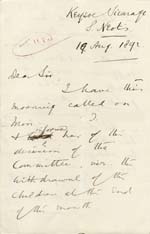 Keysoe Vicarage
S. Neots
19 Aug. 1892
Dear Sir
I have this
morning called on
Mrs. ?
& informed her of the
decision of the
Committee, viz. the
withdrawal of the
children at the end
of this month